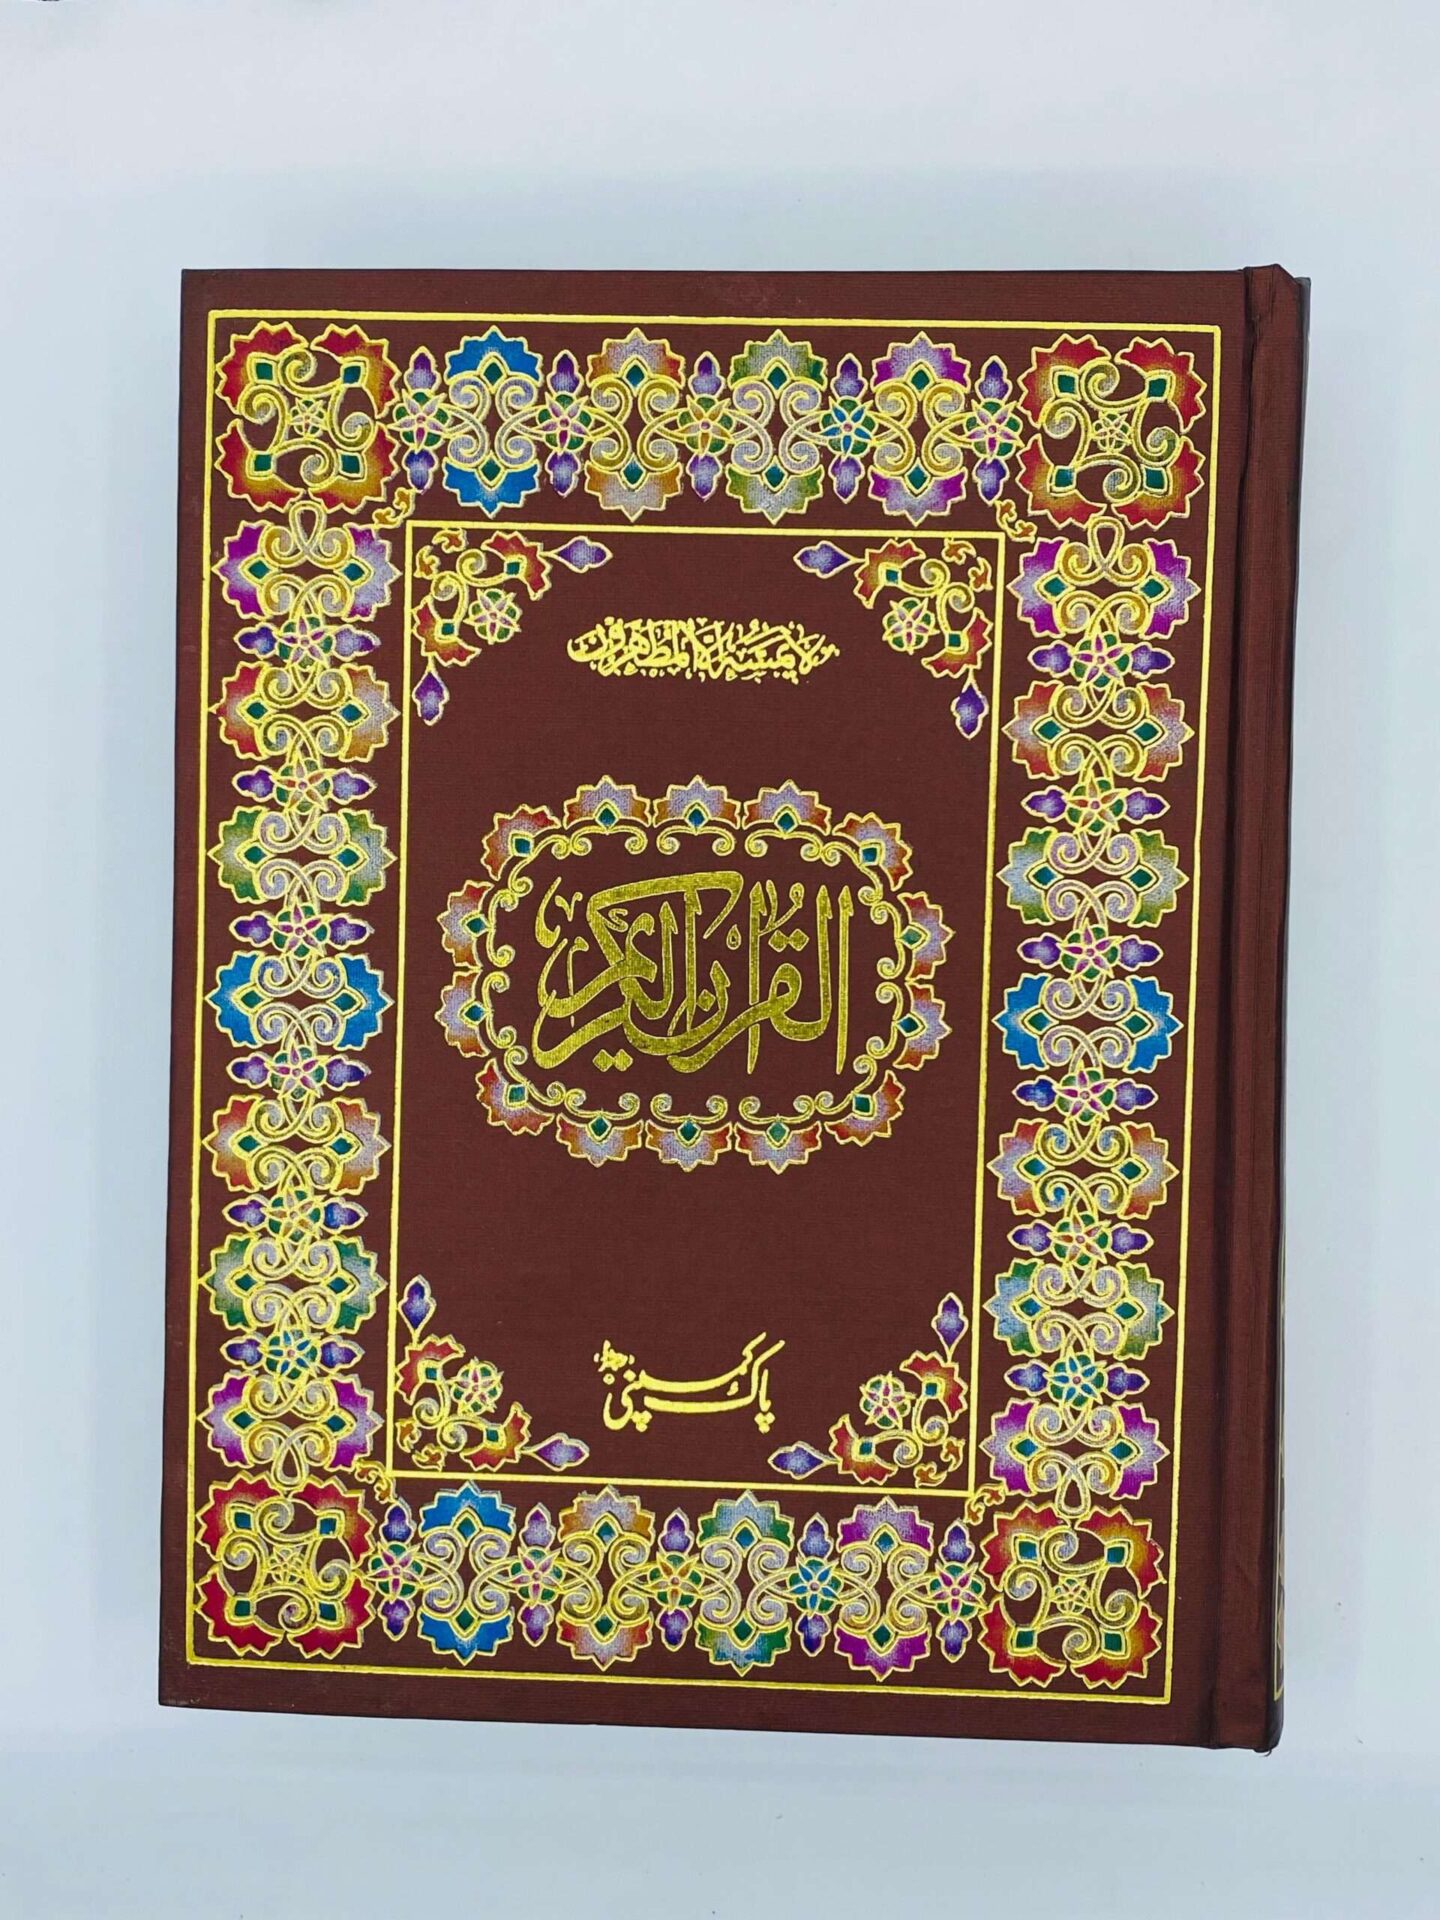 لَا يَمَسُّهُ إِلَّا الْمُطَهَّرُونَ
القُرآن الكريم
پاک کمپنی